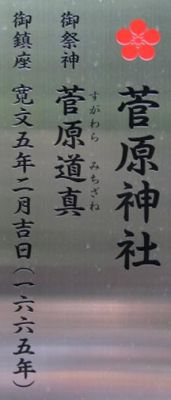 菅原神社
御祭神 菅原道真
すがわら みちざね
御鎮座 寛文五年二月吉日(一六六五年)